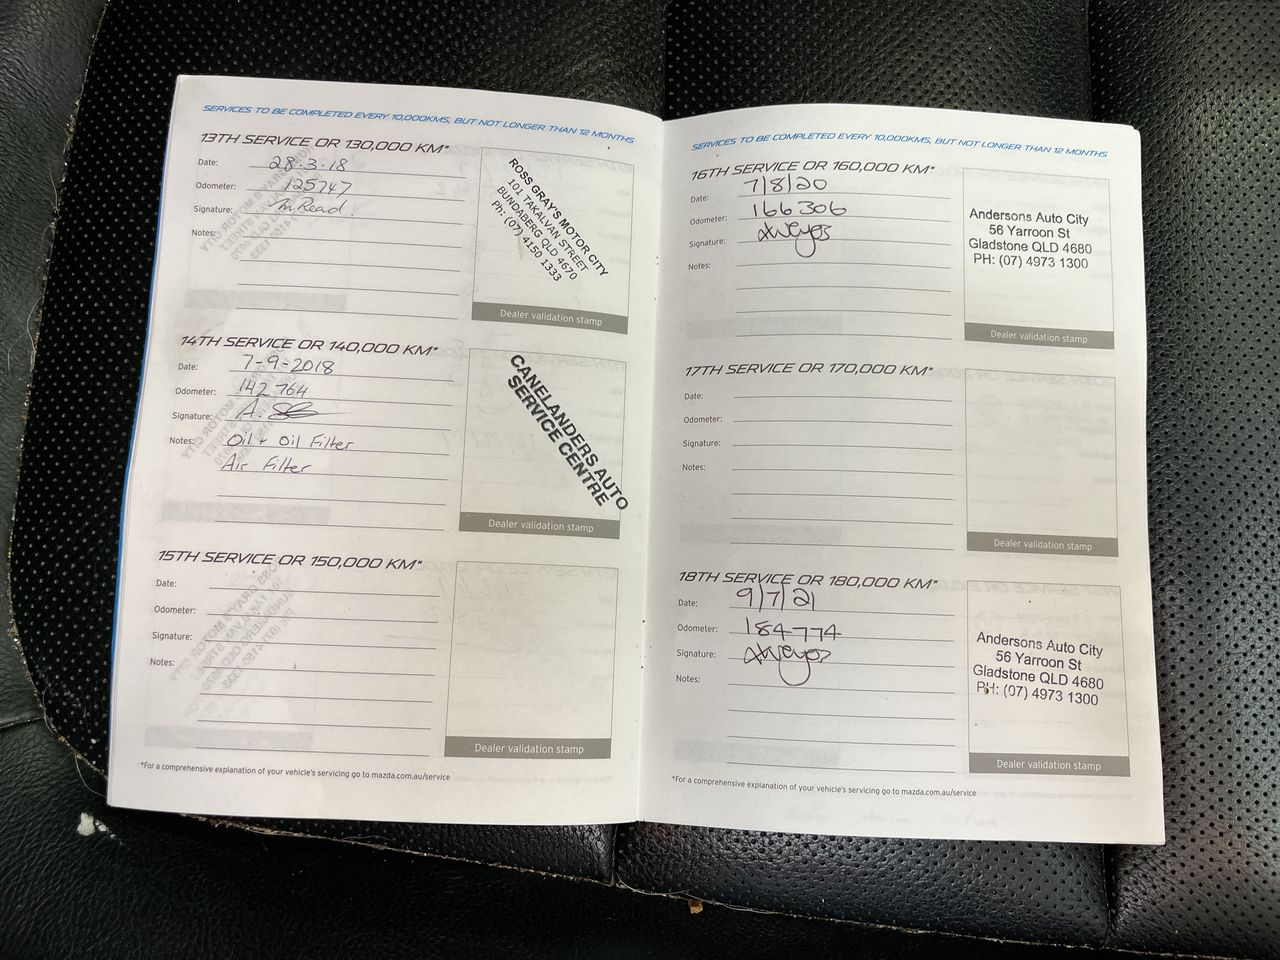 SERVICES TO BE COMPLETED EVERY 10,000KMS, BUT NOT LONGER THAN 12 MONTHS
13TH SERVICE OR 130,000 KM*
Date: 28.3.18
Odometer: 125747
Signature: M Read.
Notes:
ROSS GRAY'S MOTOR CITY
101 TAKALVAN STREET
BUNDABERG QLD 4670
Ph: (07) 4150 1333
Dealer validation stamp
14TH SERVICE OR 140,000 KM*
Date: 7-9-2018
Odometer: 142 764
Signature: A.
Notes: Oil + Oil Filter
Air Filter
CANELANDERS AUTO
SERVICE CENTRE
Dealer validation stamp
15TH SERVICE OR 150,000 KM*
Date:
Odometer:
Signature:
Notes:
Dealer validation stamp
*For a comprehensive explanation of your vehicle's servicing go to mazda.com.au/service
SERVICES TO BE COMPLETED EVERY 10,000KMS, BUT NOT LONGER THAN 12 MONTHS
16TH SERVICE OR 160,000 KM*
Date: 7/8/20
Odometer: 166306
Signature:
Notes:
Andersons Auto City
56 Yarroon St
Gladstone QLD 4680
PH: (07) 4973 1300
Dealer validation stamp
17TH SERVICE OR 170,000 KM*
Date:
Odometer:
Signature:
Notes:
Dealer validation stamp
18TH SERVICE OR 180,000 KM*
Date: 9/7/21
Odometer: 184774
Signature:
Notes:
Andersons Auto City
56 Yarroon St
Gladstone QLD 4680
PH: (07) 4973 1300
Dealer validation stamp
*For a comprehensive explanation of your vehicle's servicing go to mazda.com.au/service